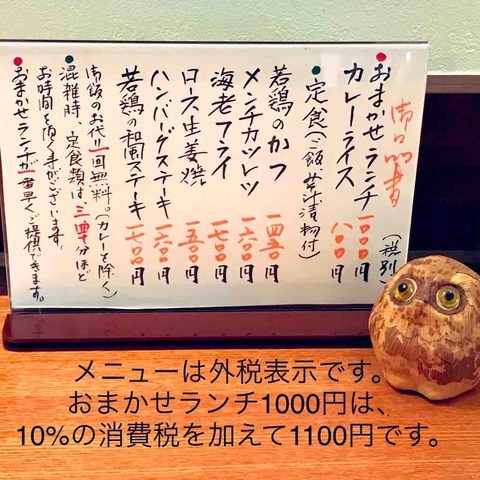 御品書
(税別)
おまかせランチ 一〇〇〇円
カレーライス 八〇〇円
定食(ご飯 味噌汁 漬物付)
若鶏のかつ 一四五〇円
メンチカツレツ 一六〇〇円
海老フライ 一七〇〇円
ロース生姜焼 一五〇〇円
ハンバーグステーキ 一六〇〇円
若鶏の和風ステーキ 一七〇〇円
御飯のお代り一回無料。(カレーを除く)
混雑時、定食類は三、四十分ほど
お時間を頂く事がございます。
おまかせランチが一番早くご提供できます。
メニューは外税表示です。
おまかせランチ1000円は、
10%の消費税を加えて1100円です。